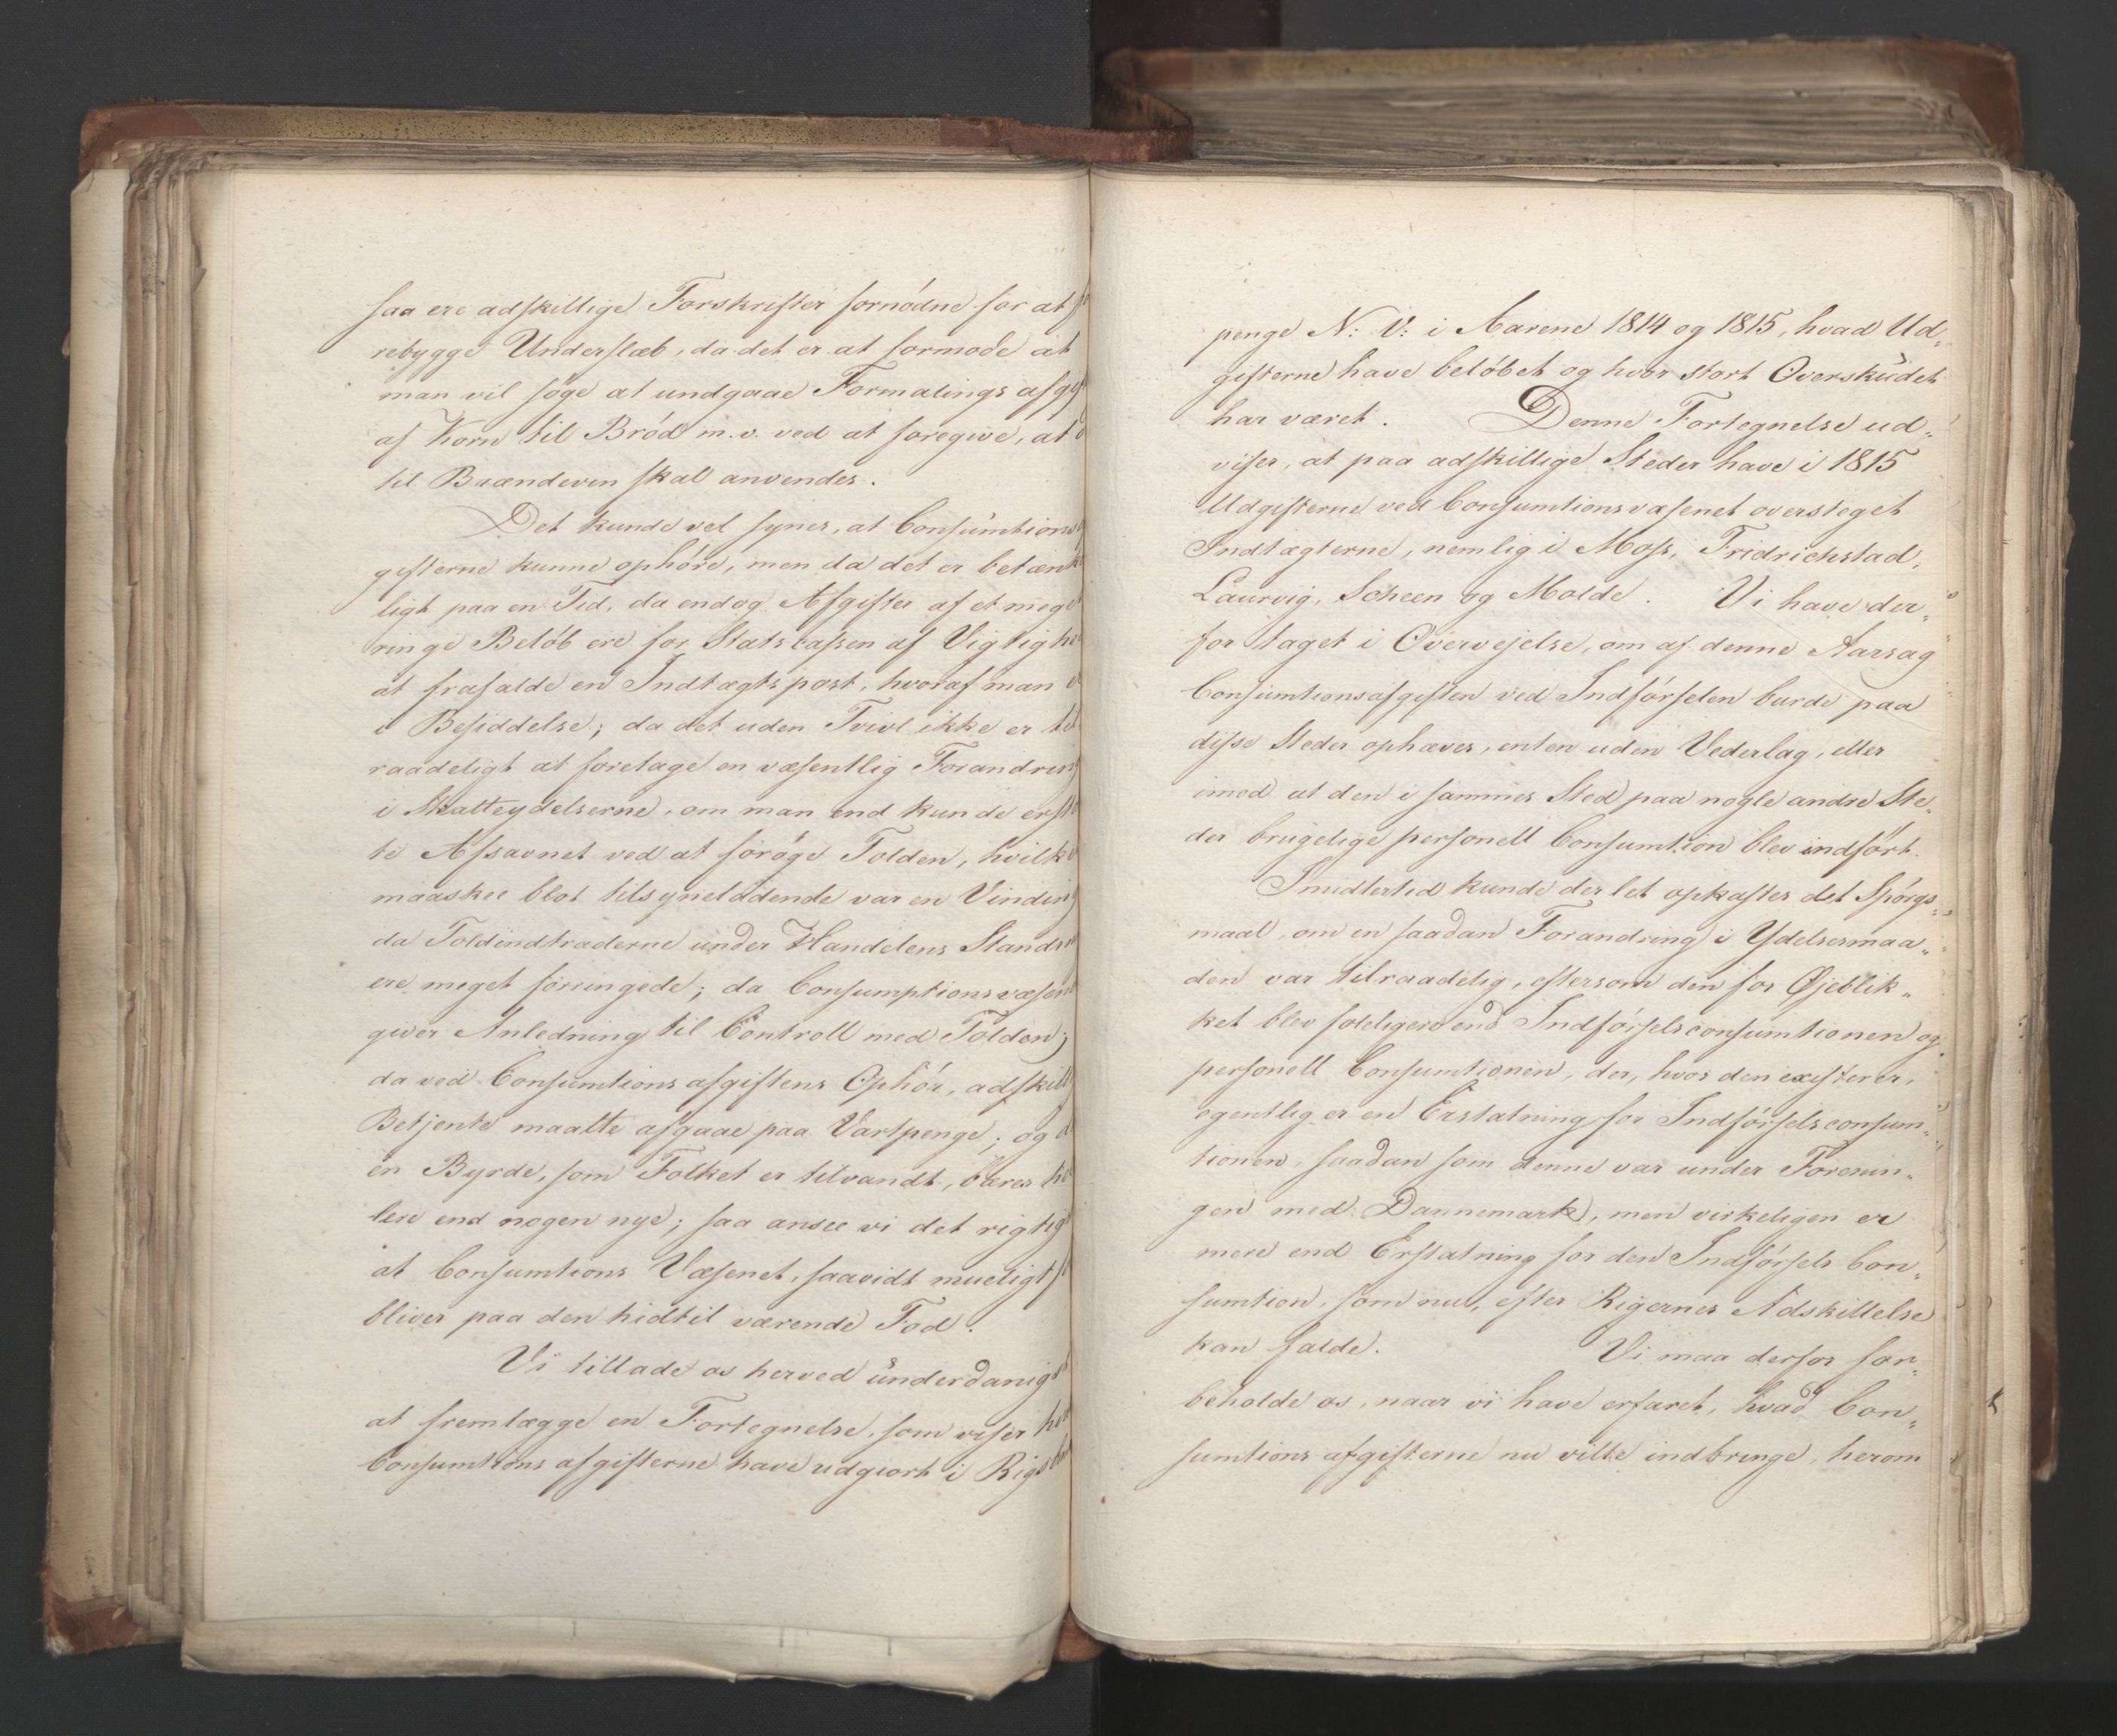 saa ere adskillige Forskrifter fornødne for at fo
rebygge Underslæb, da det er at formode at
man vil søge at undgaae Formalings afgif
af Korn til Brød m.v. ved at foregive, at d
til Brændeven skal anvendes.
Det kunde vel synes, at Consumtions
gifterne kunne ophøre, men da det er betænk
ligt paa en Tid, da endog Afgifter af et meget
ringe Beløb ere for Statscassen af Vigtighe
at frafalde en Indtægtspost, hvoraf man e
i Besiddelse; da det uden Tvivl ikke er til
raadeligt at foretage en væsentlig Forandring
i Skatteydelserne, om man end kunde ersta
te Afsavnet ved at forøge Tolden, hvilke
maaskee blot tilsyneladende var en Vinding
da Toldindtraderne under Handelens Stands
ere meget forringede; da Consumptionsvæsene
giver Anledning til Controll med Tolden;
da ved Consumtions afgiftens Ophør, adskill
Betjente maatte afgaae paa Vartpenge; og d
en Byrde, som Folket er tilvandt, bæres he
lere end nogen nye; saa ansee vi det rigtigt
at Consumtions Væsenet, saavidt mueligt, f
bliver paa den hidtil værende Fod.
Vi tillade os herved underdanigst
at fremlægge en Fortegnelse, som viser hvo
Consumtions afgifterne have udgiort i Rigsba
penge N: V: i Aarene 1814 og 1815, hvad Ud-
gifterne have beløbet og hvor stort Overskudet
har været. Denne Fortegnelse ud-
viser, at paa adskillige Steder have i 1815
Udgifterne ved Consumtionsvæsenet oversteget
Indtægterne, nemlig i Moss, Fridrichstad,
Laurvig, Scheen og Molde. Vi have der-
for taget i Overvejelse, om af denne Aarsag
Consumtionsafgiften ved Indførselen burde paa
disse Steder ophæves, enten uden Vederlag, eller
imod at den i sammes Sted paa nogle andre Ste-
der brugelige personell Consumtion blev indført.
Imidlertid kunde der let opkastes det Spørgs-
maal, om en saadan Forandring i Ydelsesmaa-
den var tilraadelig, eftersom den for Øjeblik-
ket blev foleligere end Indførselsconsumtionen og
personell Consumtionen, der, hvor den existerer,
egentlig er en Erstatning for Indførselsconsum-
tionen, saadan som denne var under Forenin-
gen med Dannemark, men virkeligen er
mere end Erstatning for den Indførsels Con-
sumtion, som nu, efter Rigernes Adskillelse
kan falde. Vi maa derfor for-
beholde os, naar vi have erfaret, hvad Con-
sumtions afgifterne nu ville indbringe, herom